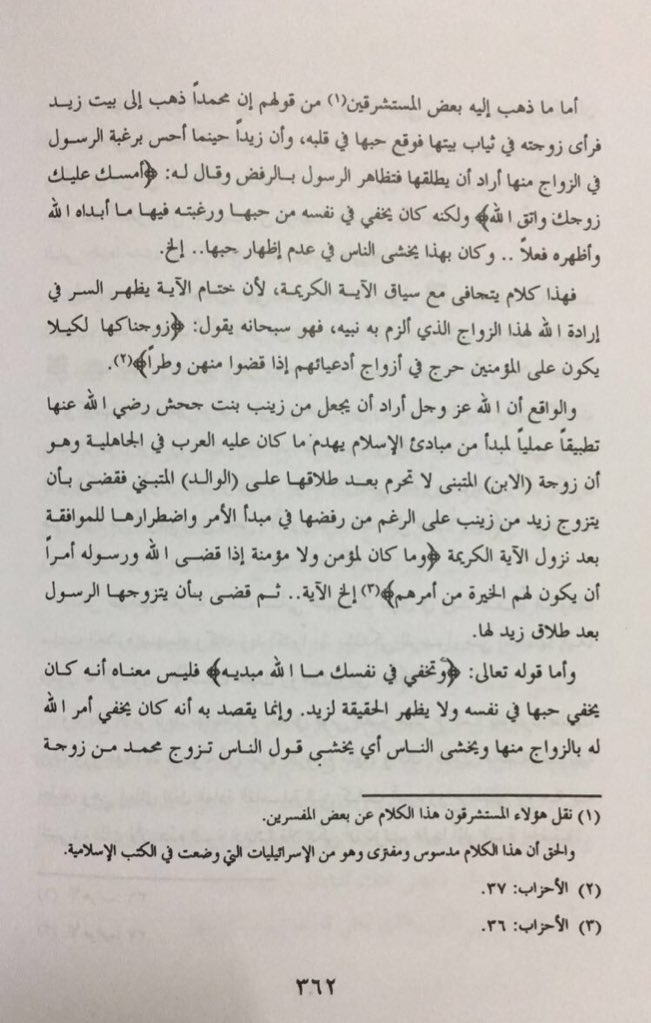 أما ما ذهب إليه بعض المستشرقين(١) من قولهم إن محمداً ذهب إلى بيت زيد
فرأى زوجته في ثياب بيتها فوقع حبها في قلبه، وأن زيداً حينما أحس برغبة الرسول
في الزواج منها أراد أن يطلقها فتظاهر الرسول بالرفض وقال له: ﴿أمسك عليك
زوجك واتق الله﴾ ولكنه كان يخفي في نفسه من حبها ورغبته فيها ما أبداه الله
وأظهره فعلاً .. وكان بهذا يخشى الناس في عدم إظهار حبها.. إلخ.
فهذا كلام يتجافى مع سياق الآية الكريمة، لأن ختام الآية يظهر السر في
إرادة الله لهذا الزواج الذي ألزم به نبيه، فهو سبحانه يقول: ﴿زوجناكها لكيلا
يكون على المؤمنين حرج في أزواج أدعيائهم إذا قضوا منهن وطراً﴾(٢).
والواقع أن الله عز وجل أراد أن يجعل من زينب بنت جحش رضي الله عنها
تطبيقاً عملياً لمبدأ من مبادئ الإسلام يهدم ما كان عليه العرب في الجاهلية وهو
أن زوجة (الابن) المتبنى لا تحرم بعد طلاقها على (الوالد) المتبني فقضى بأن
يتزوج زيد من زينب على الرغم من رفضها في مبدأ الأمر واضطرارها للموافقة
بعد نزول الآية الكريمة ﴿وما كان لمؤمن ولا مؤمنة إذا قضى الله ورسوله أمراً
أن يكون لهم الخيرة من أمرهم﴾(٣) إلخ الآية.. ثم قضى بأن يتزوجها الرسول
بعد طلاق زيد لها.
وأما قوله تعالى: ﴿وتخفي في نفسك ما الله مبديه﴾ فليس معناه أنه كان
يخفي حبها في نفسه ولا يظهر الحقيقة لزيد. وإنما يقصد به أنه كان يخفي أمر الله
له بالزواج منها ويخشى الناس أي يخشى قول الناس تزوج محمد من زوجة
(١) نقل هؤلاء المستشرقون هذا الكلام عن بعض المفسرين.
والحق أن هذا الكلام مدسوس ومفترى وهو من الإسرائيليات التي وضعت في الكتب الإسلامية.
(٢) الأحزاب: ٣٧.
(٣) الأحزاب: ٣٦.
٣٦٢